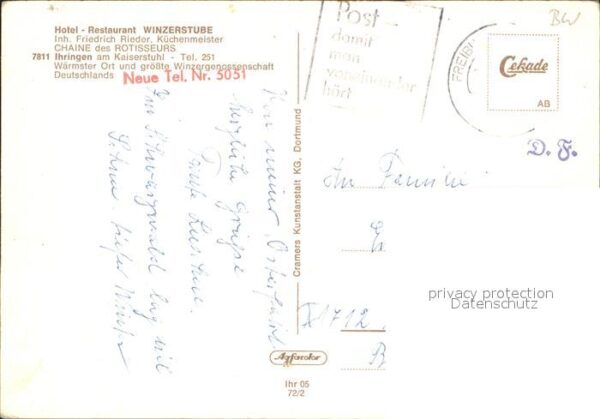 Hotel - Restaurant WINZERSTUBE
Inh. Friedrich Rieder, Küchenmeister
CHAINE des ROTISSEURS
7811 Ihringen am Kaiserstuhl - Tel. 251
Wärmster Ort und größte Winzergenossenschaft
Deutschlands
Neue Tel. Nr. 5051
Post
damit
man
voneinander
hört
FREIBU
BW
Cekade
AB
D. F.
Von meiner Osterfahrt
herzliche Grüße
im Schwarzwald lag viel
Schnee
Cramers Kunstanstalt KG. Dortmund
An Familie
1712
B
privacy protection
Datenschutz
Agfacolor
Ihr 05
72/2